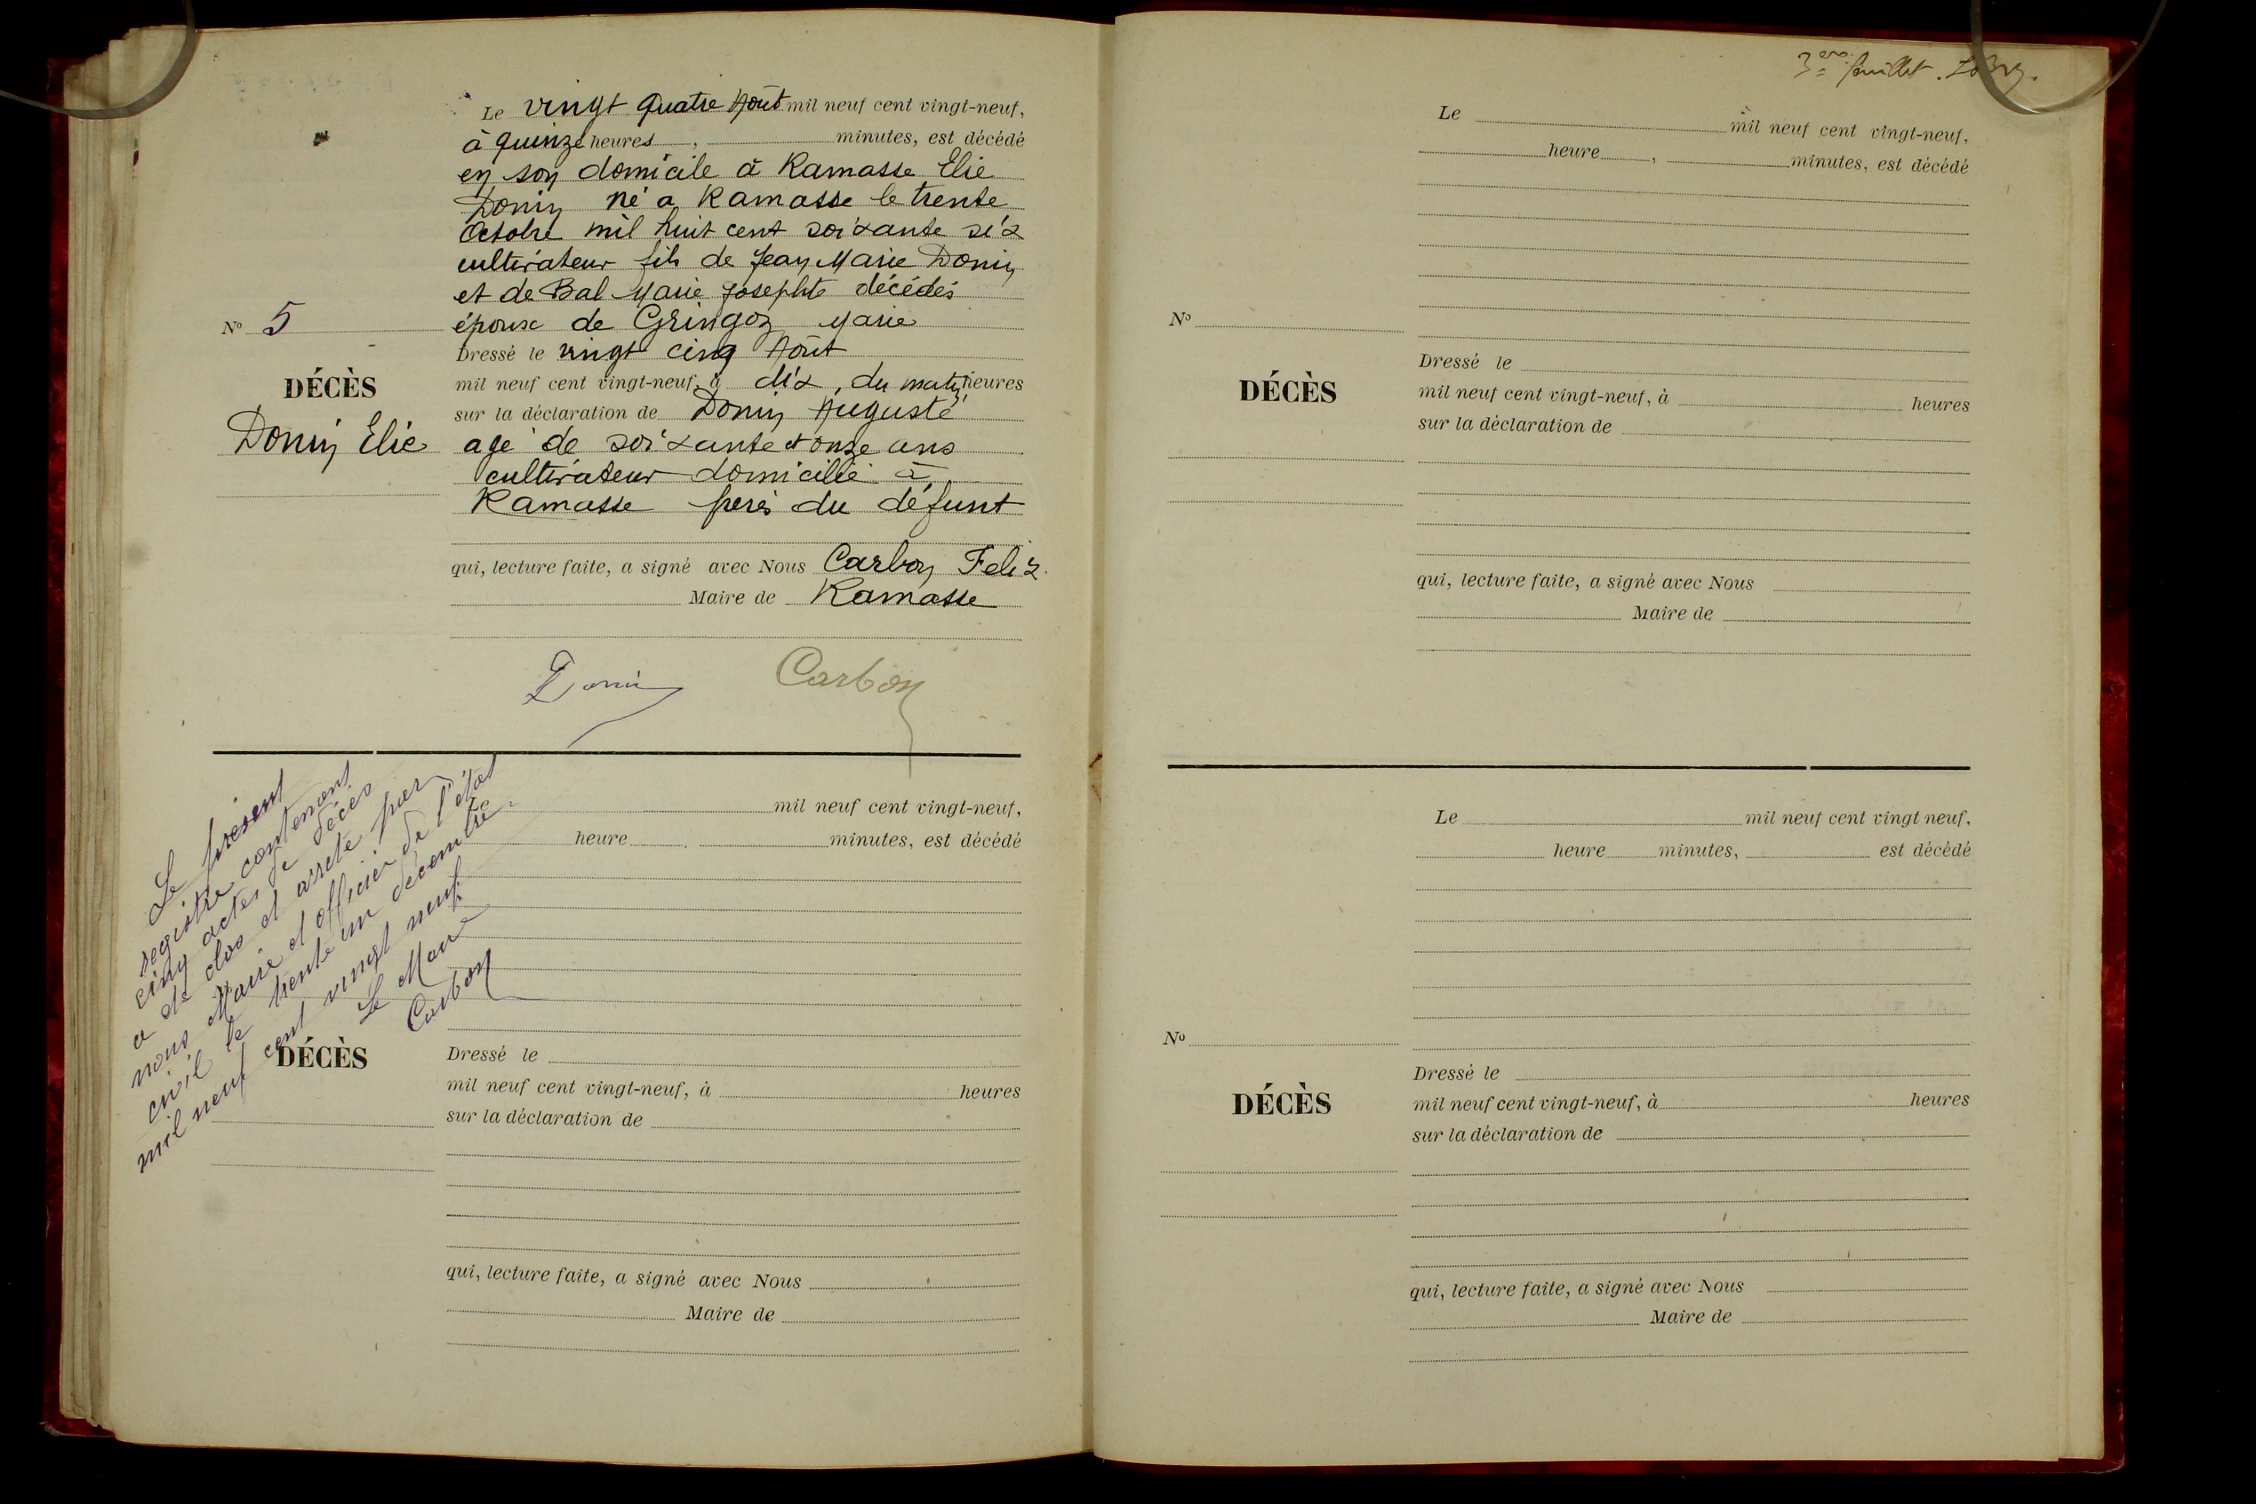 Le vingt quatre Août mil neuf cent vingt-neuf,
à quinze heures , minutes, est décédé
en son domicile à Ramasse Elie
Donin né a Ramasse le trente
Octobre mil huit cent soixante six
cultivateur fils de Jean Marie Donin
et de Bal Marie Josephte décédés
épouse de Gringoz Marie
No 5
Dressé le vingt cinq Août
mil neuf cent vingt-neuf, à dix, du matin heures
DÉCÈS
sur la déclaration de Donin Auguste
Donin Elie
agé de soixante et onze ans
cultivateur domicilié à
Ramasse frère du défunt
qui, lecture faite, a signé avec Nous Carbon Felix
Maire de Ramasse
Donin Carbon
Le présent
registre contenant
cinq actes de décès
a été clos et arrêté par
nous Maire et officier de l'état
civil le trente un décembre
mil neuf cent vingt neuf.
Le Maire
Carbon
Le mil neuf cent vingt-neuf,
heure , minutes, est décédé
DÉCÈS
Dressé le
mil neuf cent vingt-neuf, à heures
sur la déclaration de
qui, lecture faite, a signé avec Nous
Maire de
3e feuillet.
Le mil neuf cent vingt-neuf,
heure , minutes, est décédé
No
DÉCÈS
Dressé le
mil neuf cent vingt-neuf, à heures
sur la déclaration de
qui, lecture faite, a signé avec Nous
Maire de
Le mil neuf cent vingt neuf,
heure minutes, est décédé
No
DÉCÈS
Dressé le
mil neuf cent vingt-neuf, à heures
sur la déclaration de
qui, lecture faite, a signé avec Nous
Maire de